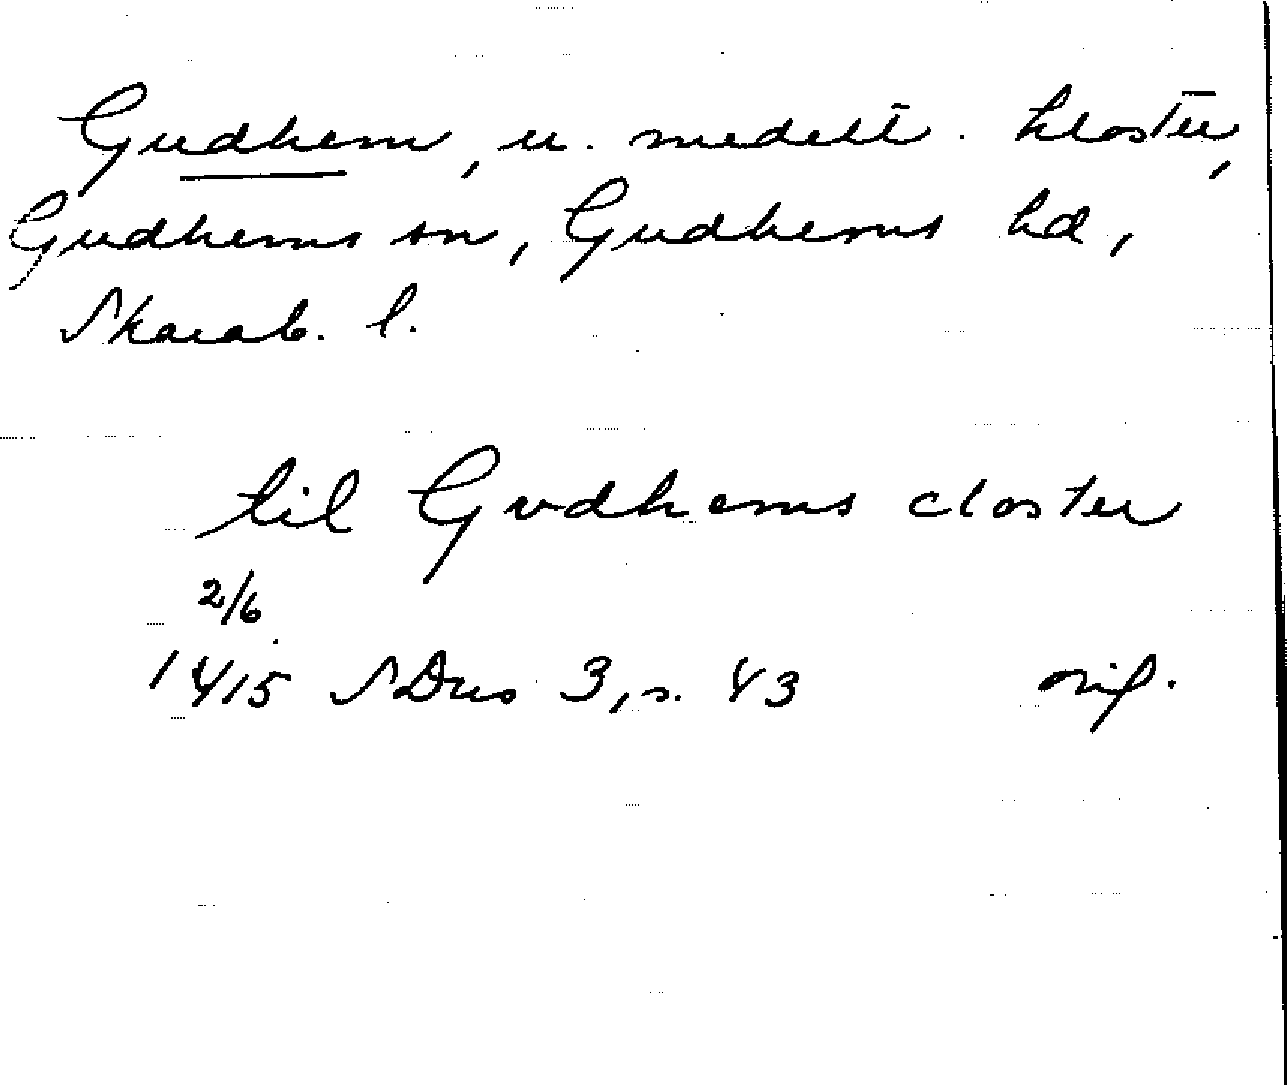 Gudhem, u. medelt. kloster,
Gudhems sn, Gudhems hd,
Skarab. l.
til Gvdhems closter
2/6
1415 SDns 3, s. 43 orig.